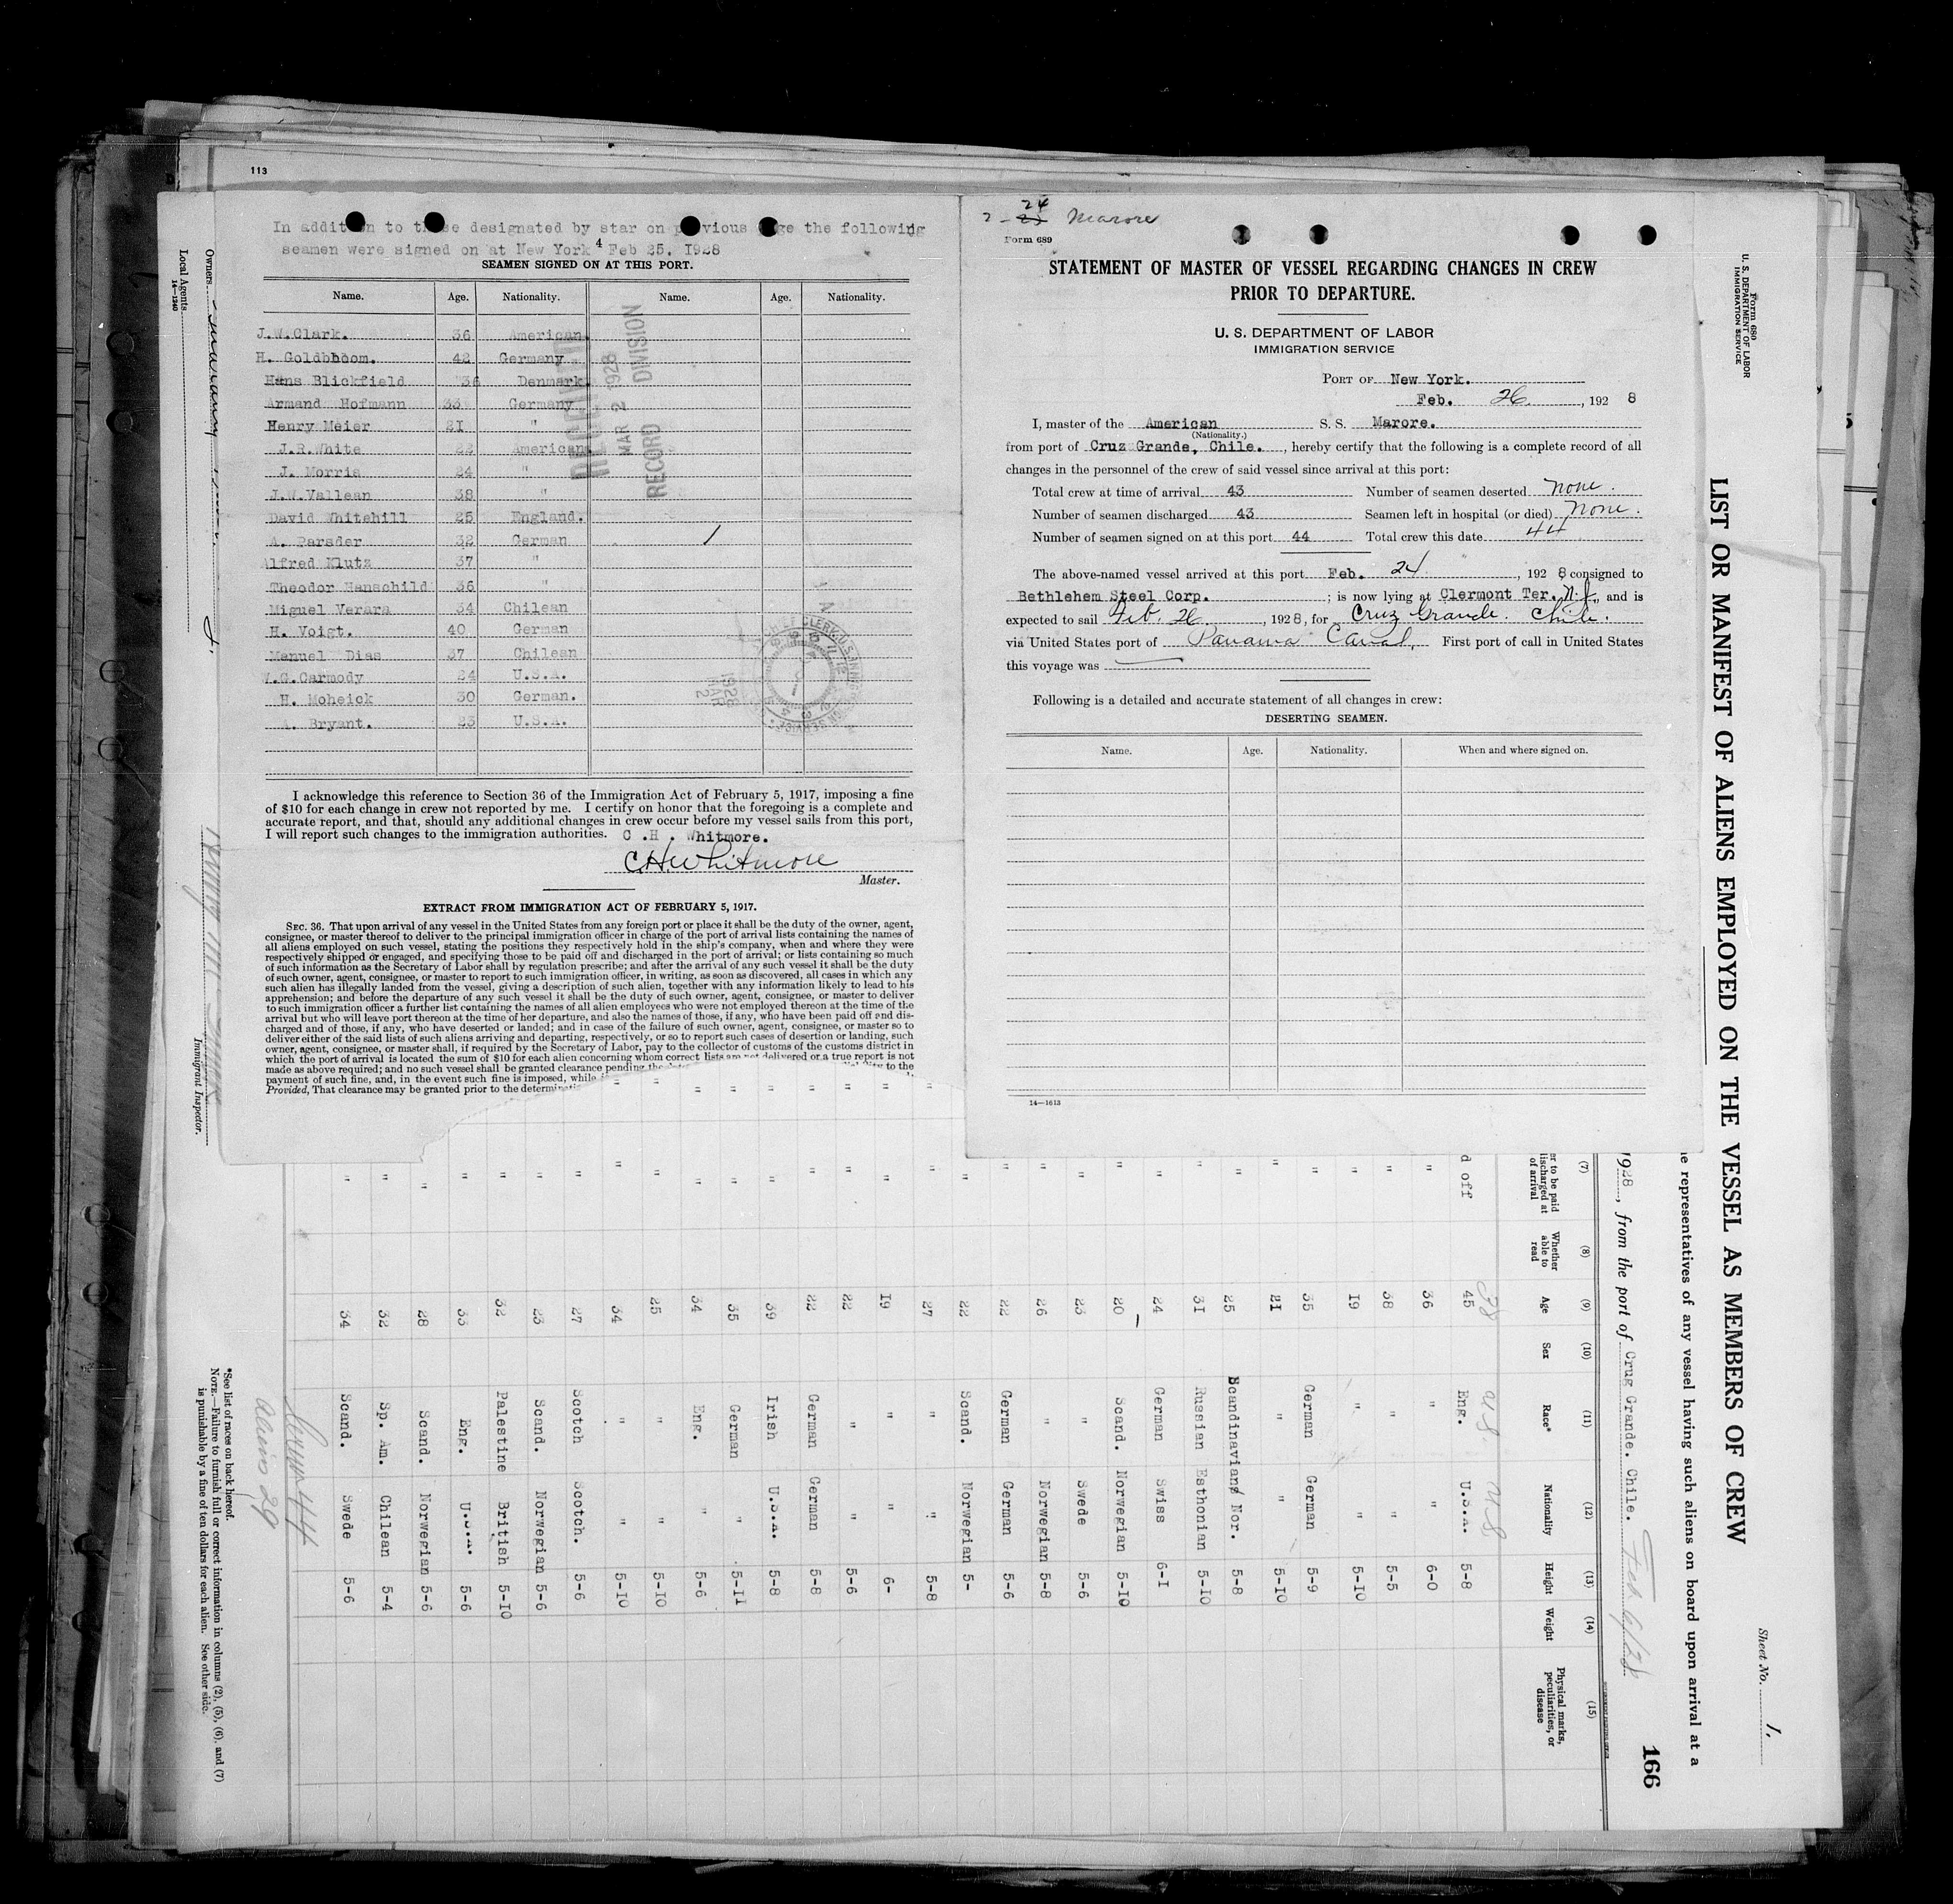 113
In addition to those designated by star on previous page the following
seamen were signed on at New York Feb 25, 1928
4
SEAMEN SIGNED ON AT THIS PORT.
Name. Age. Nationality. Name. Age. Nationality.
J.W.Clark. 36 American
H. Goldbhoom. 42 Germany
Hans Blickfield 36 Denmark
Armand Hofmann 33 Germany
Henry Meier 21 "
J.R.White 22 American
J. Morris 24 "
J.W.Vallean 38 "
David Whitehill 25 England.
A. Parsder 32 German
Alfred Klutz 37 "
Theodor Hanschild 36 "
Miguel Verara 34 Chilean
H. Voigt. 40 German
Manuel Dias 37 Chilean
W.G.Carmody 24 U.S.A.
H. Moheick 30 German.
A. Bryant. 23 U.S.A.
RECEIVED
MAR 2 1928
RECORD DIVISION
1928
MAR
2
I acknowledge this reference to Section 36 of the Immigration Act of February 5, 1917, imposing a fine
of $10 for each change in crew not reported by me. I certify on honor that the foregoing is a complete and
accurate report, and that, should any additional changes in crew occur before my vessel sails from this port,
I will report such changes to the immigration authorities. C .H . Whitmore.
C.H.Whitmore
Master.
EXTRACT FROM IMMIGRATION ACT OF FEBRUARY 5, 1917.
SEC. 36. That upon arrival of any vessel in the United States from any foreign port or place it shall be the duty of the owner, agent,
consignee, or master thereof to deliver to the principal immigration officer in charge of the port of arrival lists containing the names of
all aliens employed on such vessel, stating the positions they respectively hold in the ship's company, when and where they were
respectively shipped or engaged, and specifying those to be paid off and discharged in the port of arrival; or lists containing so much
of such information as the Secretary of Labor shall by regulation prescribe; and after the arrival of any such vessel it shall be the duty
of such owner, agent, consignee, or master to report to such immigration officer, in writing, as soon as discovered, all cases in which any
such alien has illegally landed from the vessel, giving a description of such alien, together with any information likely to lead to his
apprehension; and before the departure of any such vessel it shall be the duty of such owner, agent, consignee, or master to deliver
to such immigration officer a further list containing the names of all alien employees who were not employed thereon at the time of the
arrival but who will leave port thereon at the time of her departure, and also the names of those, if any, who have been paid off and dis-
charged and of those, if any, who have deserted or landed; and in case of the failure of such owner, agent, consignee, or master so to
deliver either of the said lists of such aliens arriving and departing, respectively, or so to report such cases of desertion or landing, such
owner, agent, consignee, or master shall, if required by the Secretary of Labor, pay to the collector of customs of the customs district in
which the port of arrival is located the sum of $10 for each alien concerning whom correct lists are not delivered or a true report is not
made as above required; and no such vessel shall be granted clearance pending the to the
payment of such fine, and, in the event such fine is imposed, while
Provided, That clearance may be granted prior to the
2 - 24 Marore
Form 689
STATEMENT OF MASTER OF VESSEL REGARDING CHANGES IN CREW
PRIOR TO DEPARTURE.
U. S. DEPARTMENT OF LABOR
IMMIGRATION SERVICE
PORT OF New York.
Feb. 26, 1928
I, master of the American S. S. Marore.
(Nationality.)
from port of Cruz Grande, Chile. , hereby certify that the following is a complete record of all
changes in the personnel of the crew of said vessel since arrival at this port:
Total crew at time of arrival 43 Number of seamen deserted none.
Number of seamen discharged 43 Seamen left in hospital (or died) none.
Number of seamen signed on at this port 44 Total crew this date 44
The above-named vessel arrived at this port Feb. 24, 1928, consigned to
Bethlehem Steel Corp. ; is now lying at Clermont Ter. N.J., and is
expected to sail Feb. 26, 1928, for Cruz Grande. Chile.
via United States port of Panama Canal, First port of call in United States
this voyage was
Following is a detailed and accurate statement of all changes in crew:
DESERTING SEAMEN.
Name. Age. Nationality. When and where signed on.
14—1613
Form 680
U. S. DEPARTMENT OF LABOR
IMMIGRATION SERVICE
LIST OR MANIFEST OF ALIENS EMPLOYED ON THE VESSEL AS MEMBERS OF CREW
Sheet No. 1.
representatives of any vessel having such aliens on board upon arrival at a
1928, from the port of Crug Grande. Chile. Feb 6/28
166
(7) (8) (9) (10) (11) (12) (13) (14) (15)
er to be paid discharged at of arrival
Whether able to read
Age
Sex
Race*
Nationality
Height
Weight
Physical marks, peculiarities, or disease
38 U.S. U.S
d off 45 Eng. U.S.A. 5-8
" 36 " " 6-0
" 38 " " 5-5
" 19 " " 5-10
" 35 German German 5-9
" 21 " " 5-10
" 25 Scandinavian Nor. 5-8
" 31 Russian Esthonian 5-10
" 24 German Swiss 6-1
" 20 Scand. Norwegian 5-10
" 23 " Swede 5-6
" 26 " Norwegian 5-8
" 22 German German 5-6
" 22 Scand. Norwegian 5-
" 27 " " 5-8
" 19 " " 6-
" 22 " " 5-6
" 22 German German 5-8
" 39 Irish U.S.A. 5-8
" 35 German " 5-11
" 34 Eng. " 5-6
" 25 " " 5-10
" 34 " " 5-10
" 27 Scotch Scotch. 5-6
" 23 Scand. Norwegian 5-6
" 32 Palestine British 5-10
" 33 Eng. U.S.A. 5-6
" 28 Scand. Norwegian 5-6
" 32 Sp. Am. Chilean 5-4
" 34 Scand. Swede 5-6
Aliens 29
*See list of races on back hereof.
NOTE.—Failure to furnish full or correct information in columns (2), (5), (6), and (7)
is punishable by a fine of ten dollars for each alien. See other side.
Immigrant Inspector.
Owners
Local Agents
14—1240